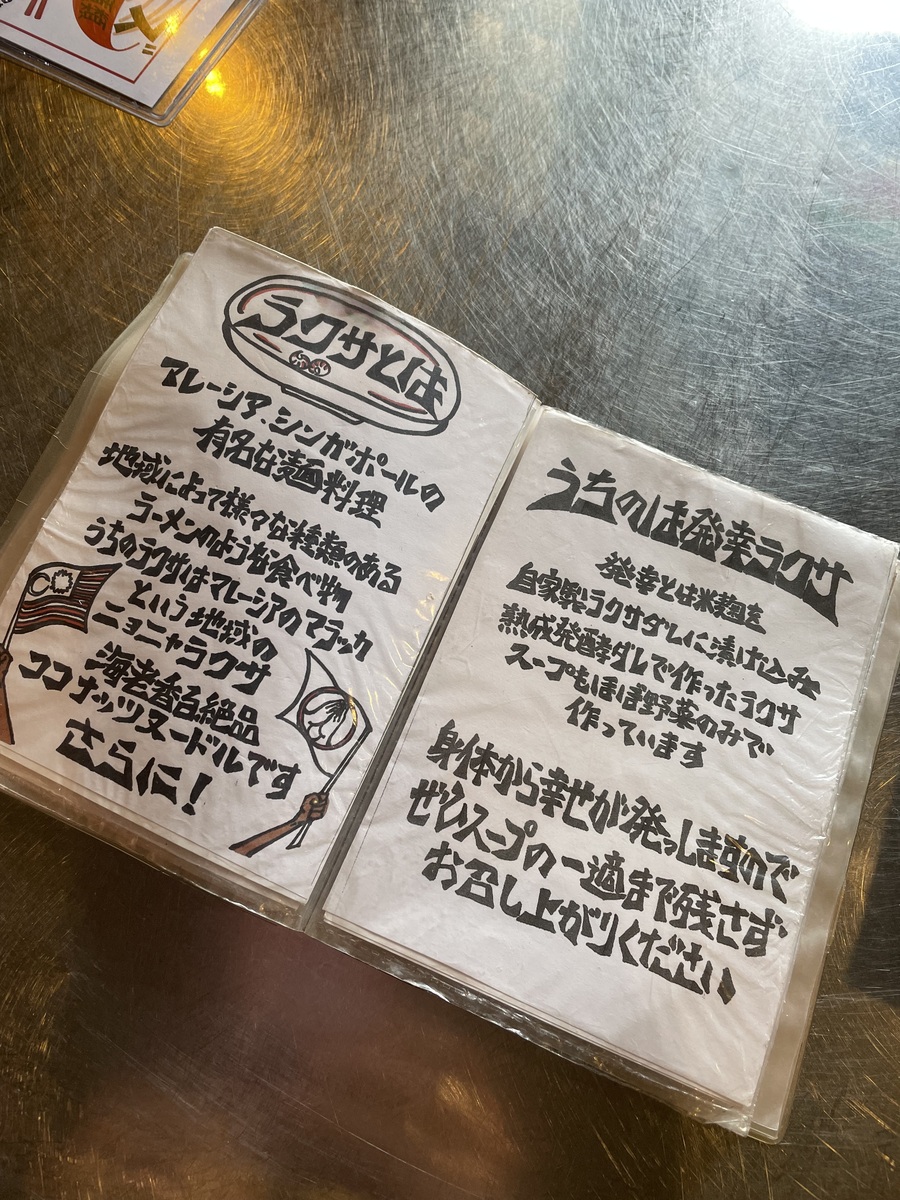 ラクサとは
マレーシア・シンガポールの
有名な麺料理
地域によって様々な種類のある
ラーメンのような食べ物
うちのラクサはマレーシアのマラッカ
という地域の
ニョニャラクサ
海老香る絶品
ココナッツヌードルです
さらに！
うちのは発幸ラクサ
発幸とは米麹を
自家製ラクサダレに漬け込み
熟成発酵ダレで作ったラクサ
スープもほぼ野菜のみで
作っています
身体から幸せが発っしますので
ぜひスープの一適まで残さず
お召し上がりください